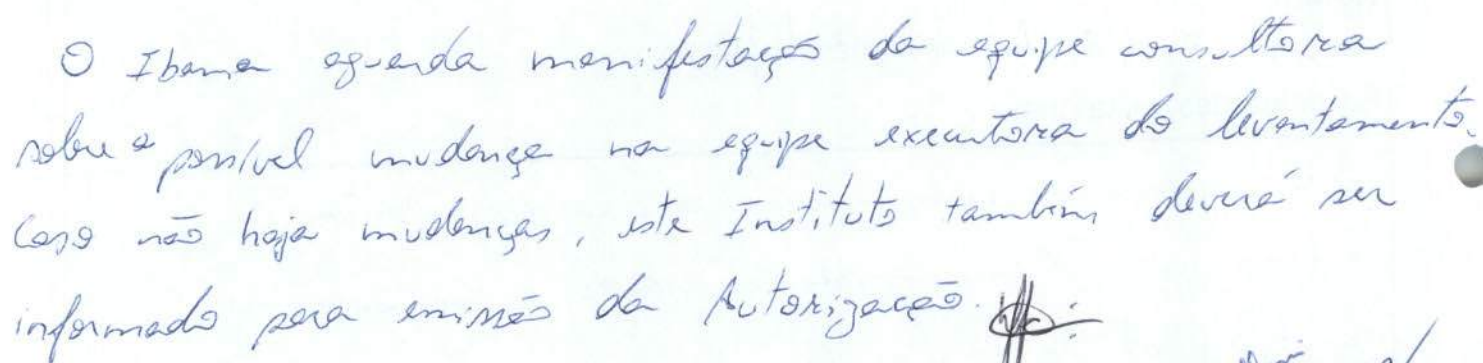 O Ibama aguarda manifestação da equipe consultora
sobre a possível mudança na equipe executora do levantamento.
Caso não haja mudanças, este Instituto também deverá ser
informado para emissão da Autorização.